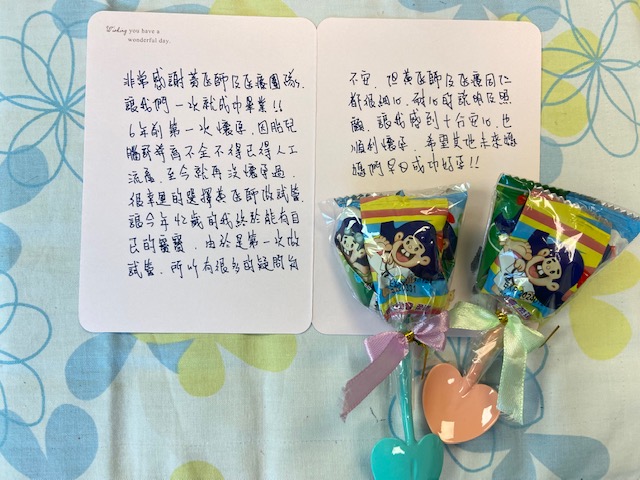 Wishing you have a
wonderful day.
非常感謝黃醫師及醫療團隊,
讓我們一次就成功畢業!!
6年前第一次懷孕,因胎兒
腦部發育不全不得已得人工
流產,至今就再沒懷孕過,
很幸運的選擇黃醫師做試管,
讓今年42歲的我終於能有自
己的寶寶,由於是第一次做
試管,所以有很多的疑問與
不安,但黃醫師及醫療同仁
都很細心、耐心的說明及照
顧,讓我感到十分安心,也
順利懷孕,希望其他未來媽
媽們早日成功好孕!!